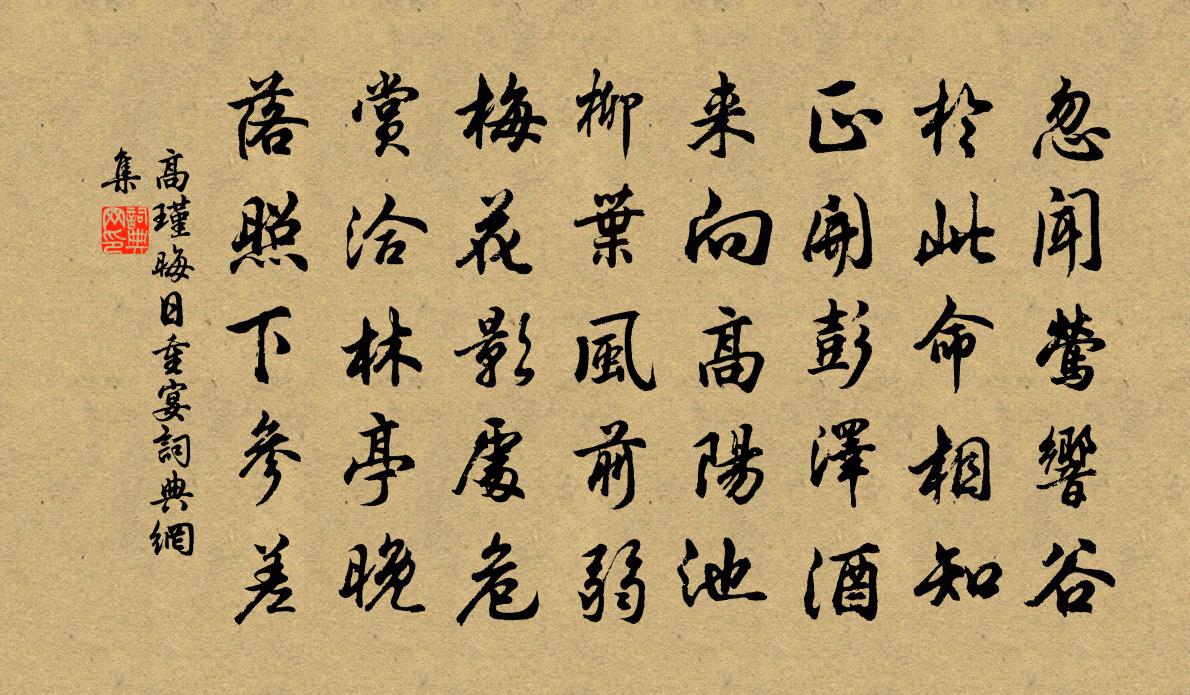 忽聞鶯響谷
於此命相知
正開彭澤酒
来向高陽池
柳葉風前弱
梅花影處危
賞洽林亭晚
落照下參差
高瑾晦日重宴詞典網
集
詞典
网印